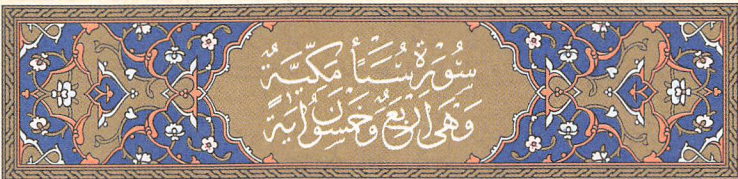 سُورَةُ سَبَأٍ مَكِّيَّةٌ
وَهِيَ اَرْبَعٌ وَخَمْسُونَ اٰيَةً